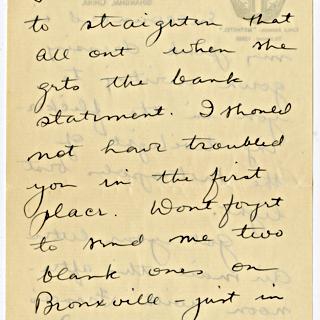 to straighten that
all out when she
gets the bank
statment. I should
not have troubled
you in the first
place. Wont forget
to send me two
blank ones on
Bronxville - just in